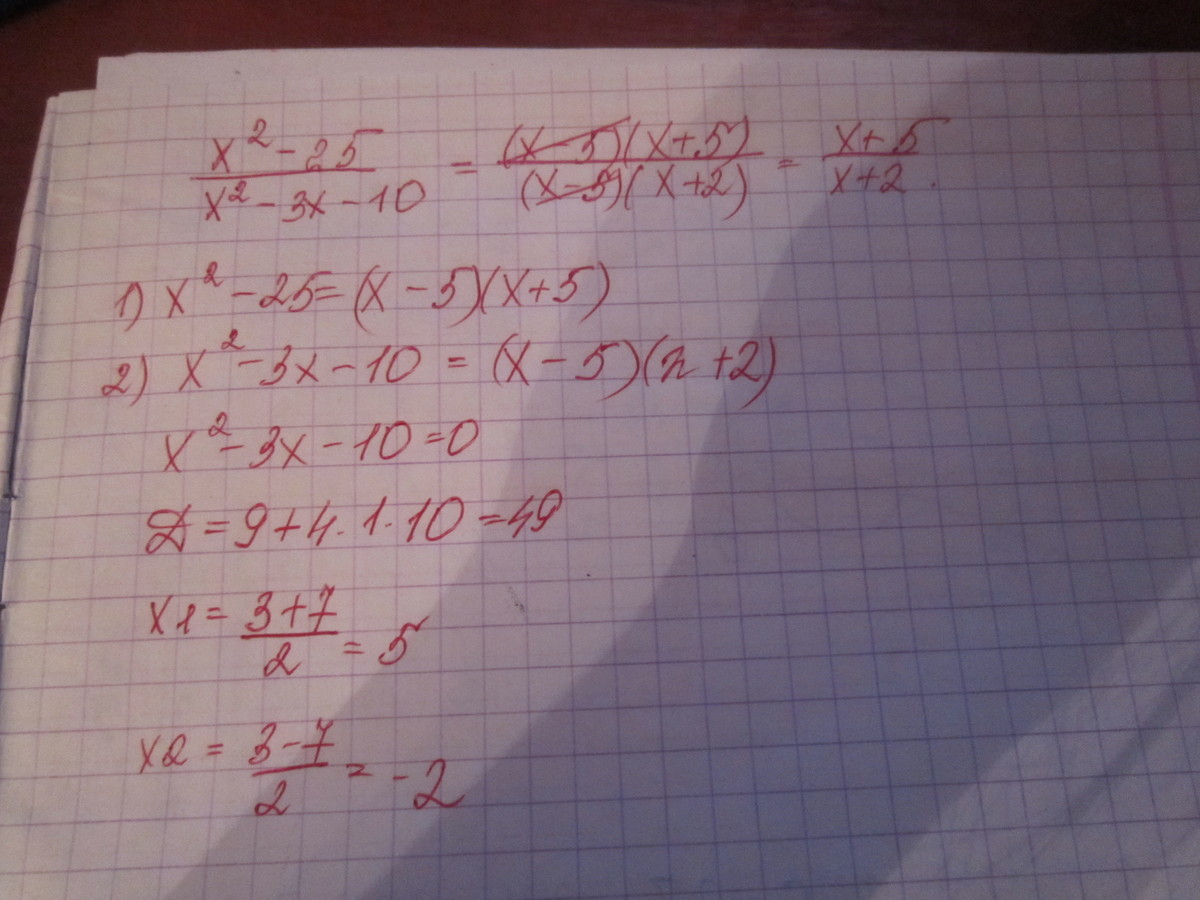 x² - 25 / x² - 3x - 10 = (x - 5)(x + 5) / (x - 5)(x + 2) = x + 5 / x + 2.
1) x² - 25 = (x - 5)(x + 5)
2) x² - 3x - 10 = (x - 5)(x + 2)
x² - 3x - 10 = 0
D = 9 + 4 · 1 · 10 = 49
x1 = 3 + 7 / 2 = 5
x2 = 3 - 7 / 2 = -2